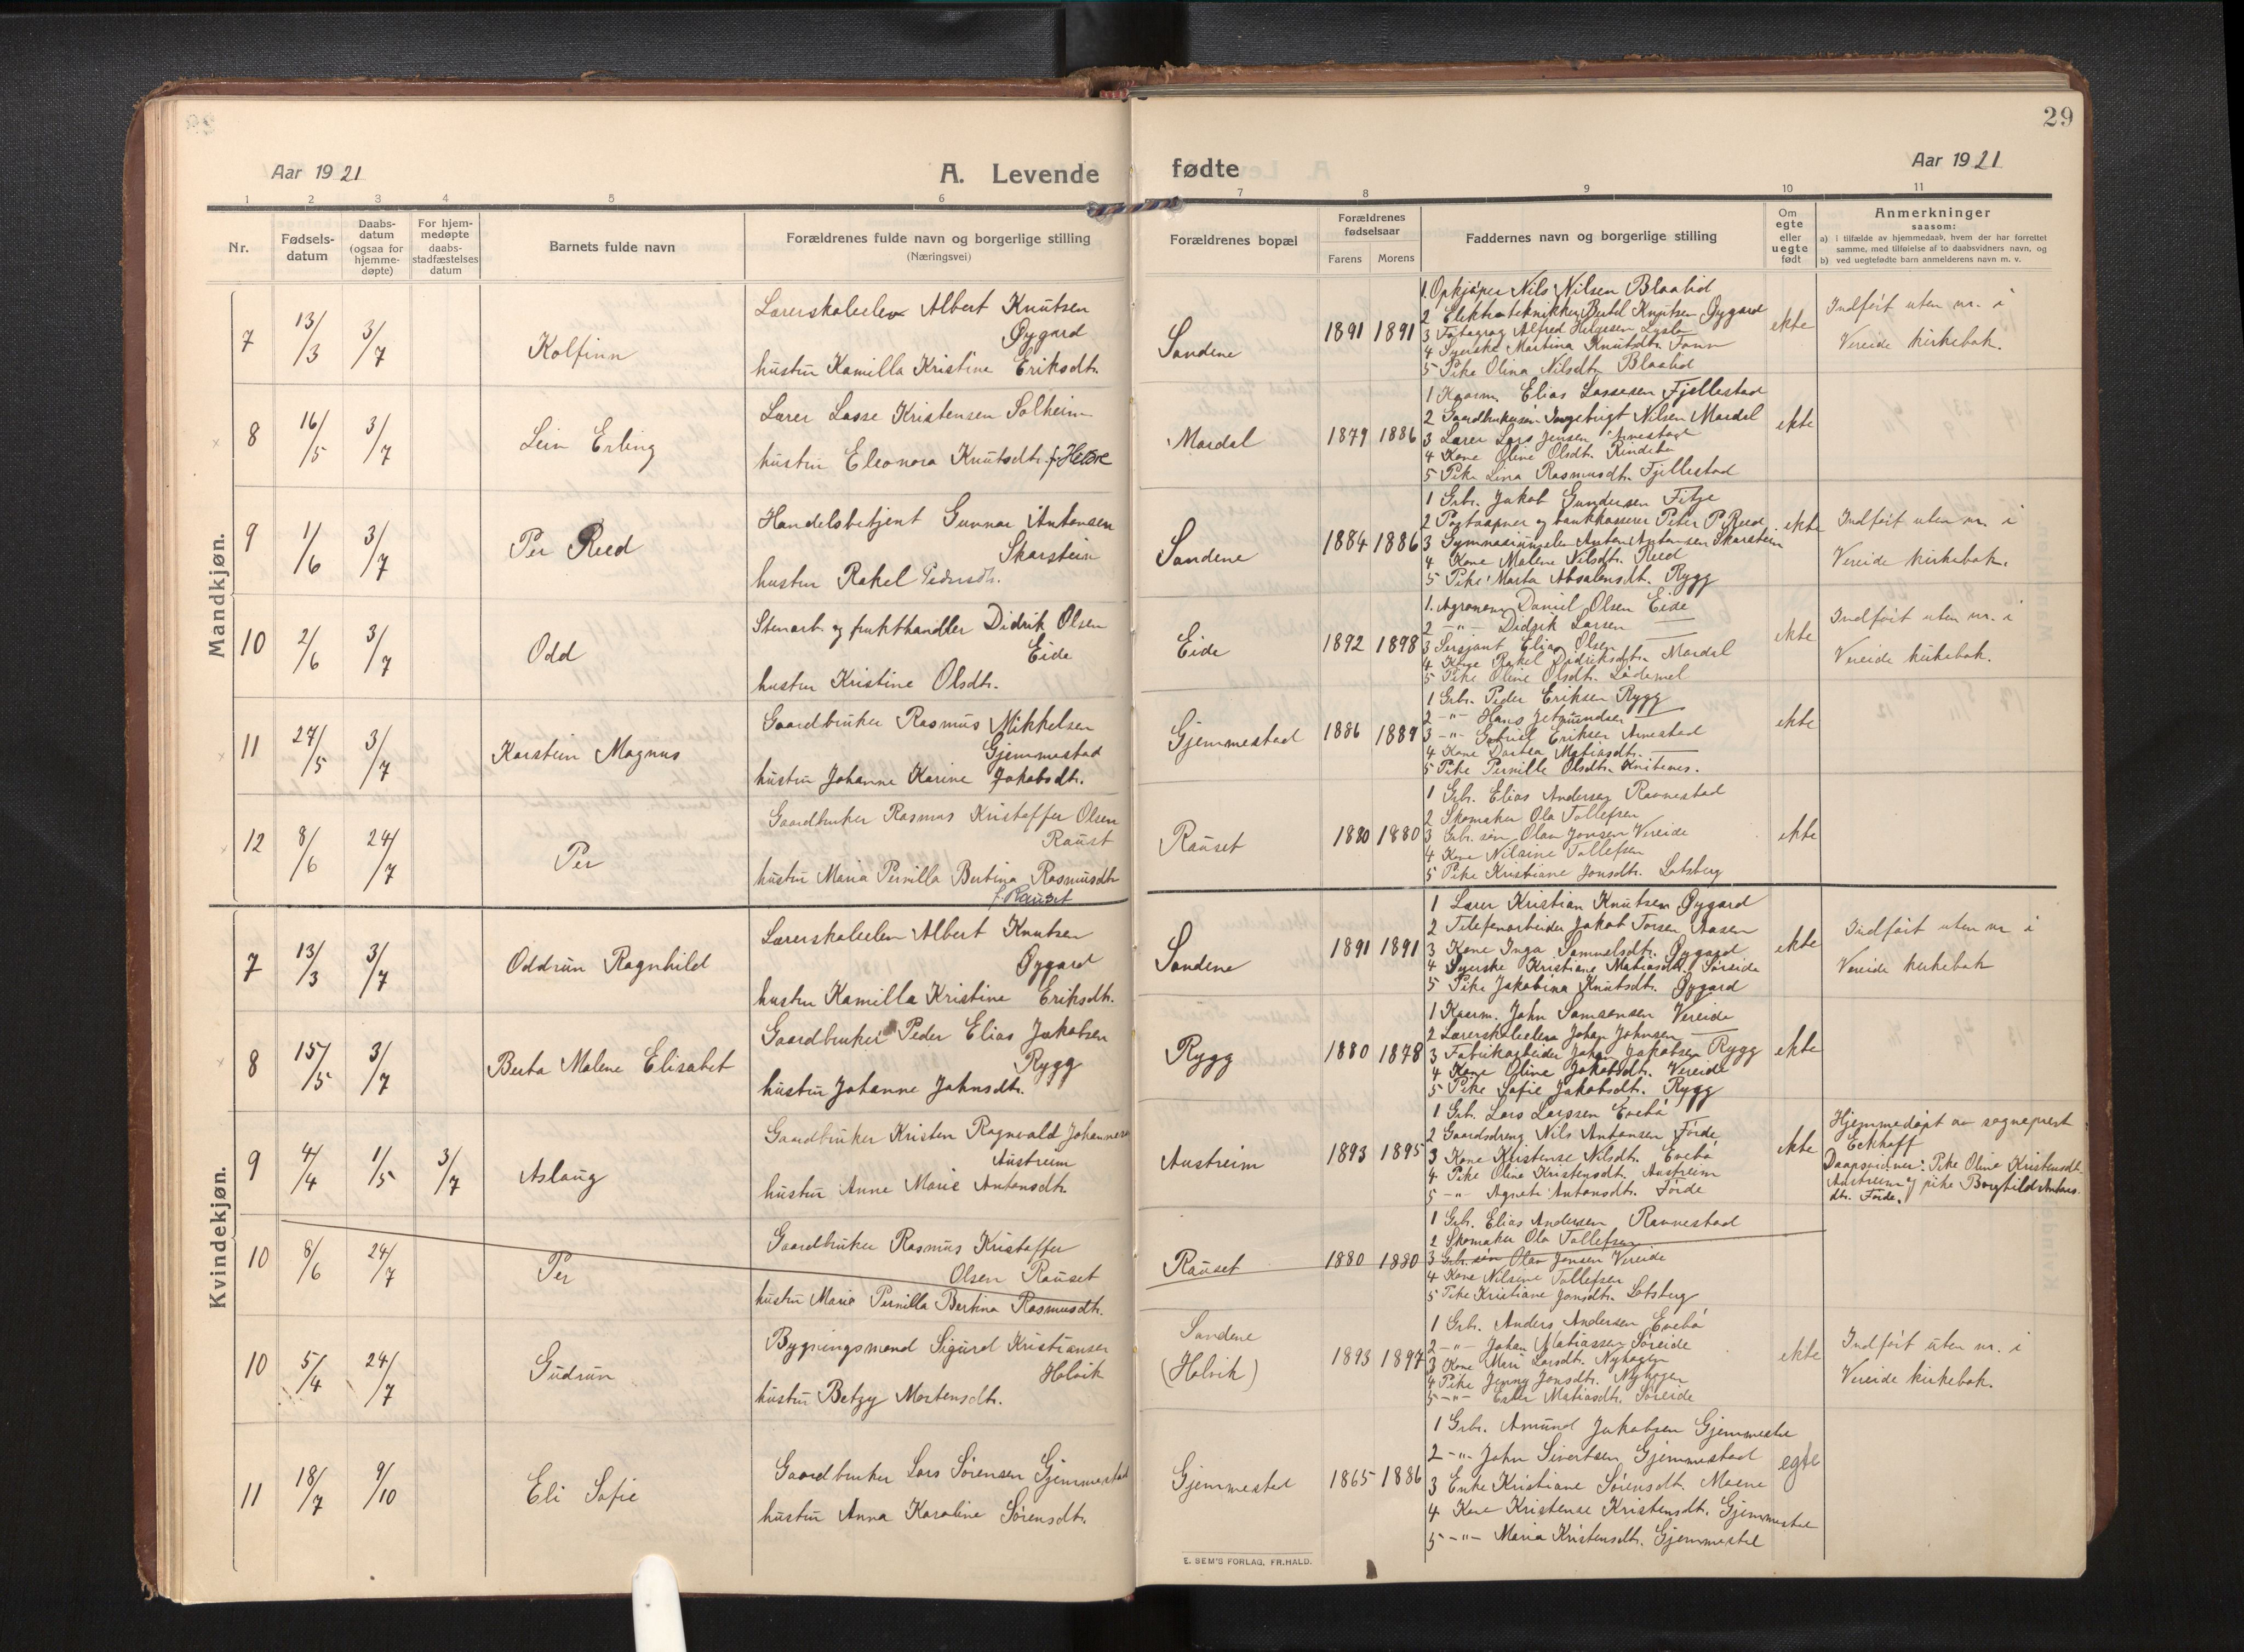 29
Aar 1921
A. Levende fødte
Aar 1921
1 2 3 4 5 6 7 8 9 10 11
Nr.
Fødsels-
datum
Daabs-
datum
(ogsaa for
hjemme-
døpte)
For hjem-
medøpte
daabs-
stadfæstelses
datum
Barnets fulde navn
Forældrenes fulde navn og borgerlige stilling
(Næringsvei)
Forældrenes bopæl
Forældrenes
fødselsaar
Farens Morens
Faddernes navn og borgerlige stilling
Om
egte
eller
uegte
født
Anmerkninger
saasom:
a) i tilfælde av hjemmedaab, hvem der har forrettet
samme, med tilføielse af to daabsvidners navn, og
b) ved uegtefødte barn anmelderens navn m. v.
Mandkjøn.
7 13/3 3/7 Kolfinn
Lærerskoleelev Albert Knutsen
Øygard
hustru Kamilla Kristine Eriksdtr.
Sandene 1891 1891
1. Opkjøper Nils Nilsen Blaalid
2 Elektrotekniker Bertel Knutsen Øygard
3 Fotograf Alfred Helgesen
4 Syerske Martina Knutsdtr.
5 Pike Olina Nilsdtr. Blaalid
ekte
Indført uten nr. i
Vereide kirkebok.
8 16/5 3/7 Lein Erling
Lærer Lasse Kristensen Solheim
hustru Eleonora Knutsdtr. f. Hetre
Mardal 1879 1886
1 Kaarm. Elias Lassesen Fjellestad
2 Gaardbrukersøn Ingebrigt Nilsen Mardal
3 Lærer Lars Jensen Arnestad
4 Kone Oline Olsdtr. Rindebø
5 Pike Lina Rasmusdtr. Fjellestad
ekte
9 1/6 3/7 Per Reed
Handelsbetjent Gunnar Antonsen
Skarstein
hustru Rakel Pedersdtr.
Sandene 1884 1886
1 Grb. Jakob Gundersen Fitje
2 Postaapner og bankkasserer Peter P. Reed
3 Gymnasiumselev Anton Antonsen Skarstein
4 Kone Malene Nilsdtr. Reed
5 Pike Marta Absalonsdt. Rygg
ekte
Indført uten nr. i
Vereide kirkebok.
10 2/6 3/7 Odd
Stenarb. og frukthandler Didrik Olsen
Eide
hustru Kristine Olsdtr.
Eide 1892 1898
1. Agronom Daniel Olsen Eide
2 -"- Didrik Larsen —
3 Sersjant Elias Olsen —
4 Kone Rakel Didriksdtr. Mardal
5 Pike Oline Olsdtr. Lødemel
ekte
Indført uten nr. i
Vereide kirkebok.
11 27/5 3/7 Karstein Magnus
Gaardbruker Rasmus Mikkelsen
Gjemmestad
hustru Johanne Karine Jakobsdtr.
Gjemmestad 1886 1889
1 Grb. Peder Eriksen Rygg
2 -"- Hans Jetmundsen —
3 -"- Gabriel Eriksen Arnestad
4 Kone Dortea Matiasdtr. —
5 Pike Pernille Olsdtr. Knitenes.
ekte
12 8/6 24/7 Per
Gaardbruker Rasmus Kristoffer Olsen
Raust
hustru Maria Pernilla Bertina Rasmusdtr
f. Rauset
Rauset 1880 1880
1 Grb. Elias Andersen Ravnestad
2 Skomaker Ola Tollefsen
3 Grb. søn Olav Jonsen Vereide
4 Kone Nilsine Tollefsen
5 Pike Kristiane Jonsdtr. Lotsberg
ekte
Kvindekjøn.
7 13/3 3/7 Oddrun Ragnhild
Lærerskoleelev Albert Knutsen
Øygard
hustru Kamilla Kristine Eriksdtr.
Sandene 1891 1891
1 Lærer Kristian Knutsen Øygard
2 Telefonarbeider Jakob Torsen Aasen
3 Kone Inga Samuelsdtr. Øygard
4 Syerske Kristiane Matiasdtr. Søreide
5 Pike Jakobina Knutsdtr. Øygard
ekte
Indført uten nr i
Vereide kirkebok
8 15/5 3/7 Berta Malene Elisabet
Gaardbruker Peder Elias Jakobsen
Rygg
hustru Johanne Johnsdtr.
Rygg 1880 1878
1 Kaarm. John Samsonsen Vereide
2 Lærerskoleelev Johan Johnsen —
3 Fabrikarbeider Johan Jakobsen Rygg
4 Kone Oline Jakobsdtr. Vereide
5 Pike Sofie Jakobsdtr. Rygg
ekte
9 4/4 1/5 3/7 Aslaug
Gaardbruker Kristen Ragnvald Johannesen
Austreim
hustru Anne Marie Antonsdtr.
Austreim 1893 1895
1 Grb. Lars Larssen Evebø
2 Gaardsdreng Nils Antonsen Førde
3 Kone Kristense Nilsdtr. Evebø
4 Pike Oline Kristensdtr. Austreim
5 -"- Agnete Antonsdtr. Førde
ekte
Hjemmedøpt av sogneprest
Eckhoff
Daapsvidner: Pike Oline Kristensdtr.
Austreim og pike Borghild Antons-
dtr. Førde.
10 8/6 24/7 Per
Gaardbruker Rasmus Kristoffer
Olsen Rauset
hustru Marie Pernilla Bertina Rasmusdtr.
Rauset 1880 1880
1 Grb. Elias Andersen Ravnestad
2 Skomaker Ola Tollefsen
3 Grb. søn Olav Jonsen Vereide
4 Kone Nilsine Tollefsen
5 Pike Kristiane Jonsdtr. Lotsberg
10 5/4 24/7 Gudrun
Bygningsmand Sigurd Kristiansen
Holvik
hustru Betzy Mortensdtr.
Sandene
(Holvik) 1893 1897
1 Grb. Anders Andersen Evebø
2 -"- Johan Matiassen Søreide
3 Kone Mari Larsdtr. Nyhagen
4 Pike Jenny Jonsdtr. Nyhagen
5 -"- Ester Matiasdtr. Søreide
ekte
Indført uten nr. i
Vereide kirkebok.
11 18/7 9/10 Eli Sofie
Gaardbruker Lars Sørensen Gjemmestad
hustru Anna Karoline Sørensdtr.
Gjemmestad 1865 1886
1 Grb. Amund Jakobsen Gjemmestad
2 -"- John Sivertsen Gjemmestad
3 Enke Kristiane Sørensdt. Moene
4 Kone Kristense Kristensdt. Gjemmestad
5 -"- Maria Kristensdtr. Gjemmestad
egte
E. SEM'S FORLAG, FR.HALD.